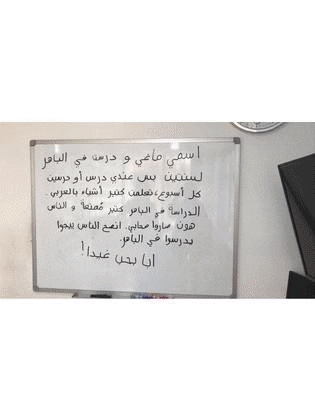 اسمي ماغي و درست في الباهر
لسنتين بس عندي درس أو درسين
كل أسبوع، تعلمت كتير أشياء بالعربي.
الدراسة في الباهر كتير مُمتعة و الناس
هون صاروا صحابي. انصح الناس ييجوا
يدرسوا في الباهر.
انا بحب غيدا!